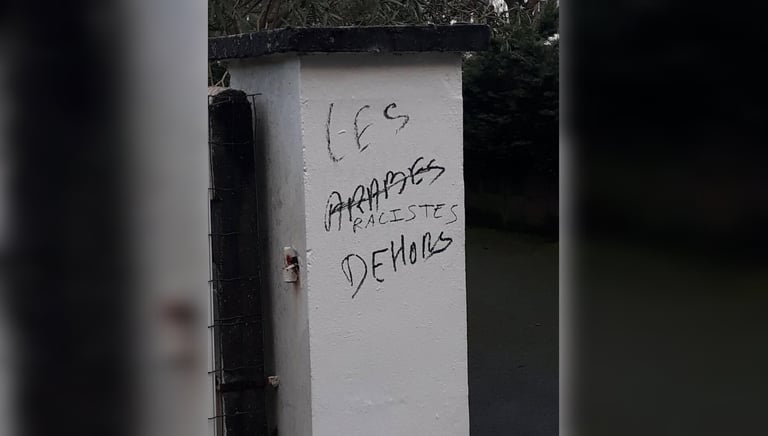 LES
ARABES
RACISTES
DEHORS